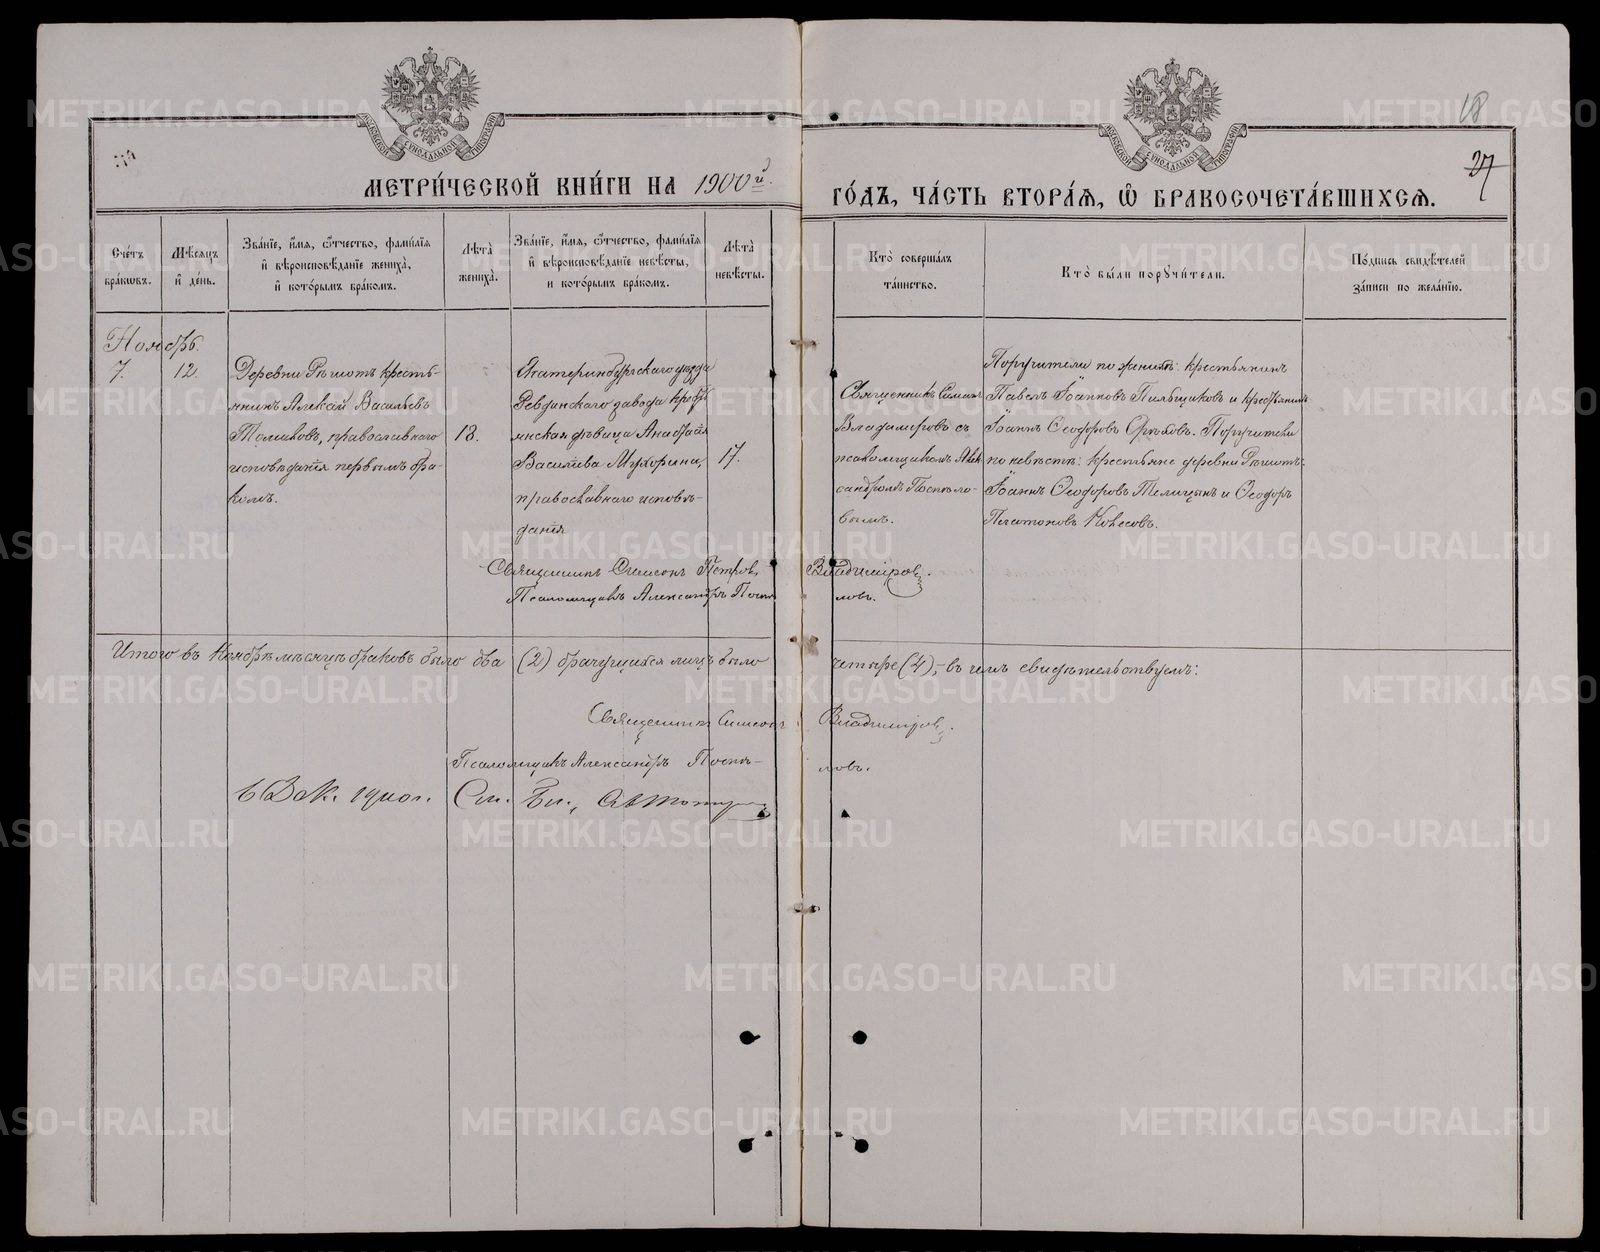 18
27
МОСКОВСКОЙ СѴНОДАЛЬНОЙ ТИПОГРАФІИ
МОСКОВСКОЙ СѴНОДАЛЬНОЙ ТИПОГРАФІИ
МЕТРИ́ЧЕСКОЙ КНИ́ГИ НА 1900й.
ГО́ДЪ, ЧА́СТЬ ВТОРА́Я, Ѽ БРАКОСОЧЕТА́ВШИХСЯ.
Сче́тъ бра́ковъ.
Мѣ́сяцъ и́ де́нь.
Зва́нїе, и́мя, ѻ́тчество, фами́лїя и́ вѣроисповѣ́данїе жениха̀, и́ кото́рымъ бра́комъ.
Лѣ́та жениха̀.
Зва́нїе, и́мя, ѻ́тчество, фами́лїя и́ вѣроисповѣ́данїе невѣ́сты, и кото́рымъ бра́комъ.
Лѣ́та невѣ́сты.
Кто̀ соверша́лъ та́инство.
Кто̀ бы́ли порꙋчи́тели.
По́дпись свидѣ́телей за́писи по жела́нїю.
Ноябрь.
7.
12.
Деревни Рѣшотъ кресть-
янинъ Алексѣй Васильевъ
Толмаковъ, православнаго
исповѣданія первымъ бра-
комъ.
18.
Екатеринбургскаго уѣзда
Ревдинскаго завода кресть
янская дѣвица
Васильева Мухорина,
православнаго исповѣ-
данія
17.
Священникъ Симеонъ
Владимировъ съ
псаломщикомъ Алек
сандромъ Поспѣло-
вымъ.
Поручители по женихѣ: крестьянинъ
Павелъ Іоанновъ Пильщиковъ и крестьянинъ
Іоаннъ Ѳеодоровъ Орѣховъ. Поручители
по невѣстѣ: крестьяне деревни Рѣшотъ:
Іоаннъ Ѳеодоровъ Телицынъ и Ѳеодоръ
Платоновъ Колесовъ.
Священникъ Симеонъ Петровъ Владиміровъ.
Псаломщикъ Александръ Поспѣловъ.
Итого въ Ноябрѣ мѣсяцѣ браковъ было два (2) брачущихся лицъ было четыре (4), въ чемъ свидѣтельствуемъ:
Священникъ Симеонъ Владиміровъ.
Псаломщикъ Александръ Поспѣ-
ловъ.
6 Дек. 1900 г. См. Бл.,
METRIKI.GASO-URAL.RU